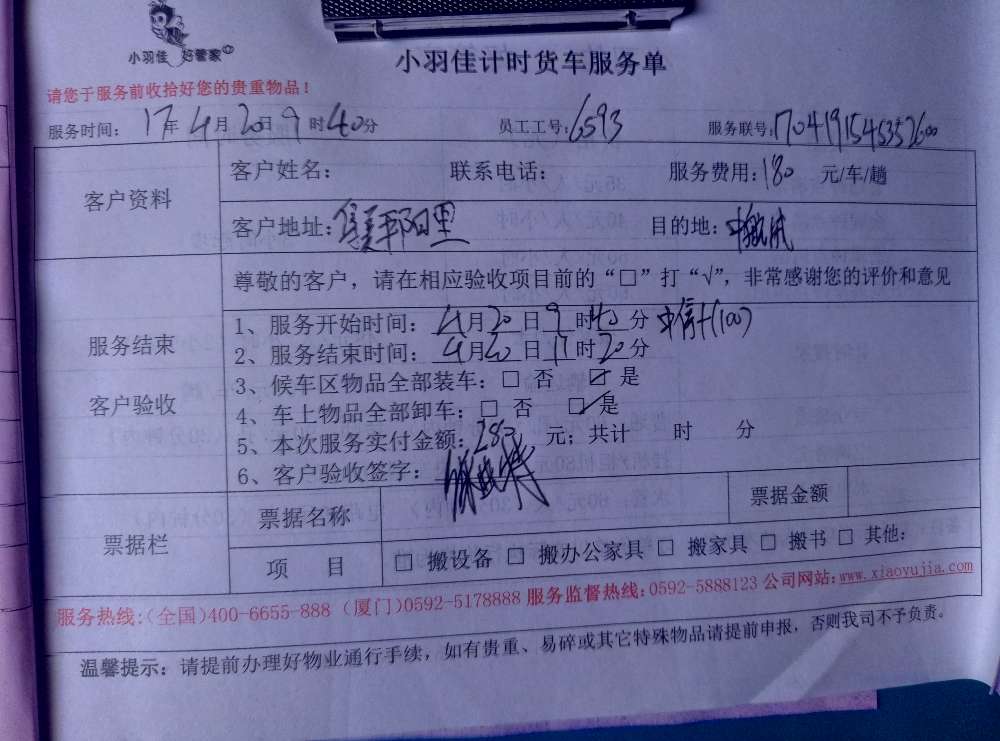 小羽佳 好管家
小羽佳计时货车服务单
请您于服务前收拾好您的贵重物品！
服务时间：17年4月20日9时40分 员工工号：6593 服务联号：1704191545352600
客户资料
客户姓名： 联系电话： 服务费用：180 元/车/趟
客户地址： 里 目的地：中航城
尊敬的客户，请在相应验收项目前的“□”打“√”，非常感谢您的评价和意见
服务结束
客户验收
1、服务开始时间：4月20日9时40分 中信卡(100)
2、服务结束时间：4月20日17时20分
3、候车区物品全部装车：□ 否 ☑ 是
4、车上物品全部卸车：□ 否 ☑ 是
5、本次服务实付金额：280 元；共计 时 分
6、客户验收签字：
票据栏
票据名称 票据金额
项 目 □ 搬设备 □ 搬办公家具 □ 搬家具 □ 搬书 □ 其他：
服务热线：(全国)400-6655-888 (厦门)0592-5178888 服务监督热线：0592-5888123 公司网站：www.xiaoyujia.com
温馨提示：请提前办理好物业通行手续，如有贵重、易碎或其它特殊物品请提前申报，否则我司不予负责。